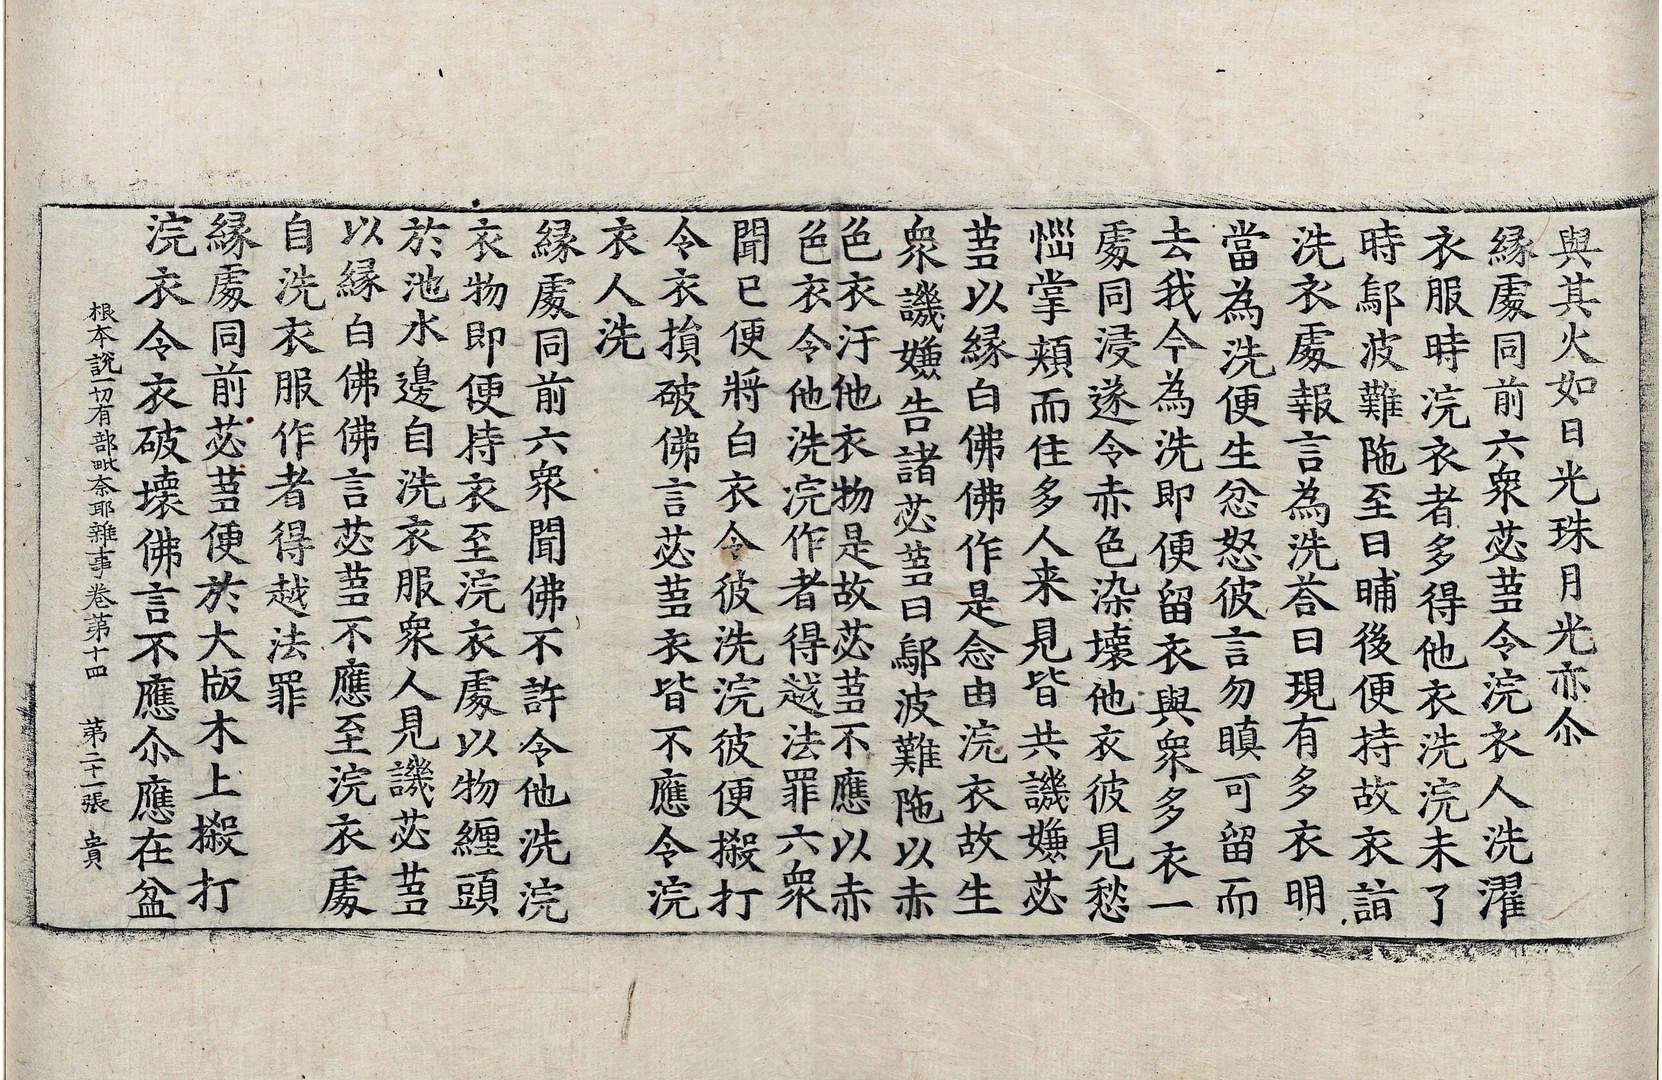 與其火如日光珠月光亦尒
緣處同前六衆苾蒭令浣衣人洗濯
衣服時浣衣者多得他衣洗浣未了
時鄔波難陁至日晡後便持故衣詣
洗衣處報言為洗荅曰現有多衣明
當為洗便生忿怒彼言勿瞋可留而
去我今為洗即便留衣與衆多衣一
處同浸遂令赤色染壞他衣彼見愁
惱掌頰而住多人来見皆共譏嫌苾
蒭以緣白佛佛作是念由浣衣故生
衆譏嫌告諸苾蒭曰鄔波難陁以赤
色衣汙他衣物是故苾蒭不應以赤
色衣令他洗浣作者得越法罪六衆
聞已便將白衣令彼洗浣彼便搬打
令衣損破佛言苾蒭衣皆不應令浣
衣人洗
緣處同前六衆聞佛不許令他洗浣
衣物即便持衣至浣衣處以物纏頭
於池水邊自洗衣服衆人見譏苾蒭
以緣白佛佛言苾蒭不應至浣衣處
自洗衣服作者得越法罪
緣處同前苾蒭便於大版木上搬打
浣衣令衣破壞佛言不應尒應在盆
根本說一切有部毗奈耶雜事卷第十四 第二十一張